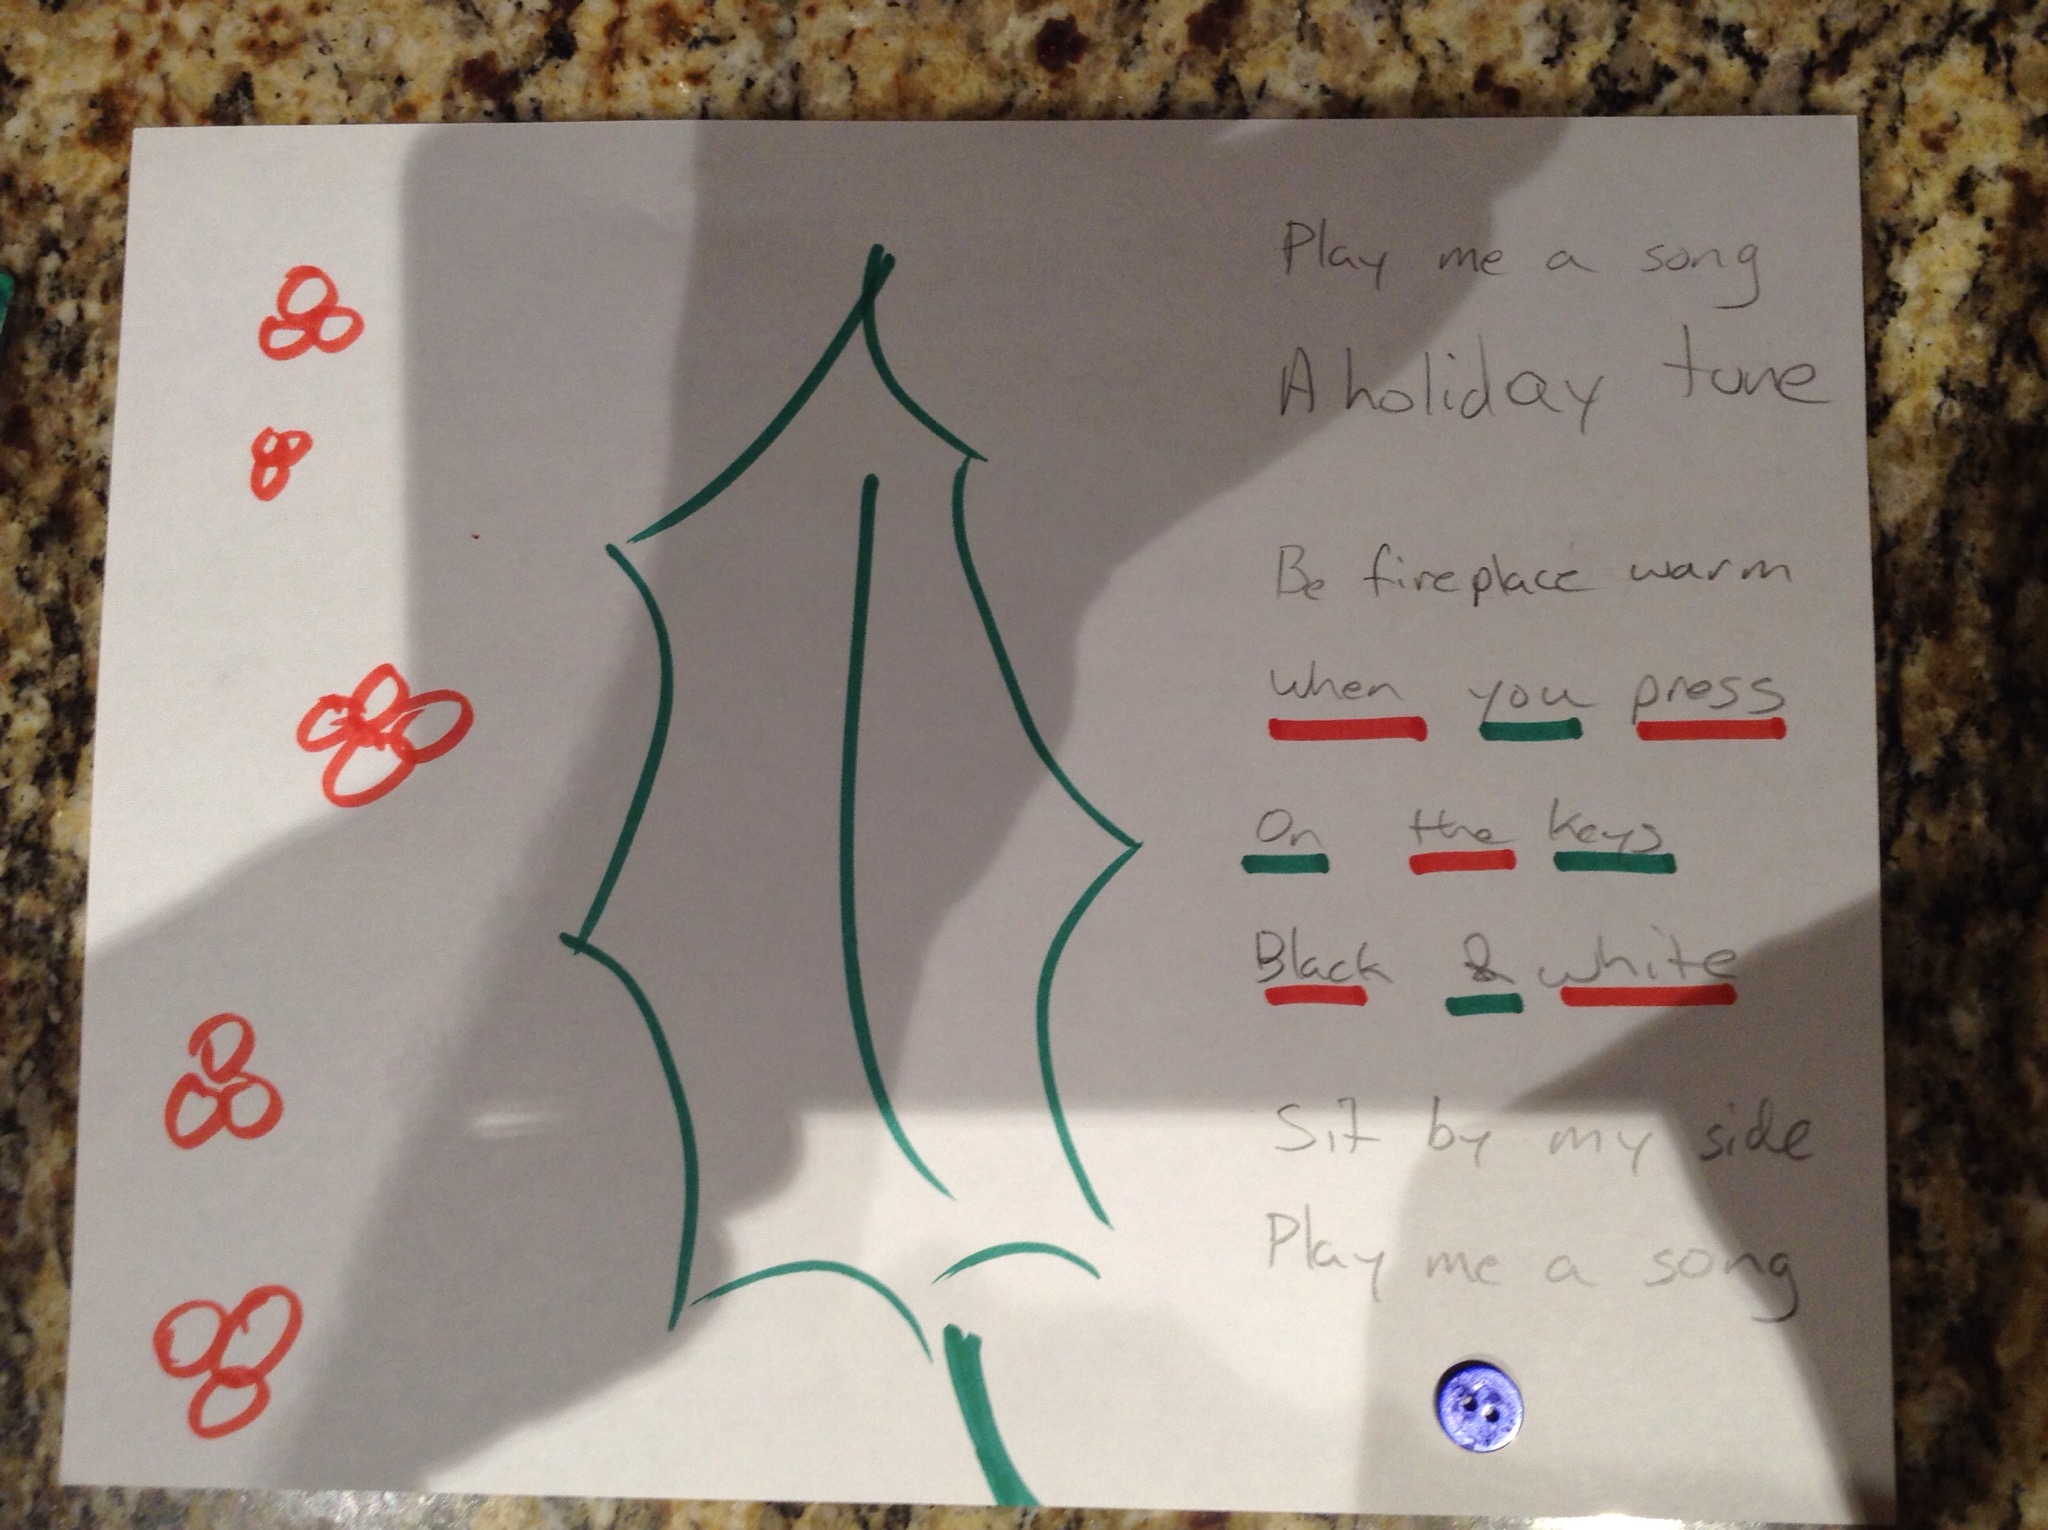 Play me a song
A holiday tune
Be fireplace warm
when you press
On the keys
Black & white
Sit by my side
Play me a song